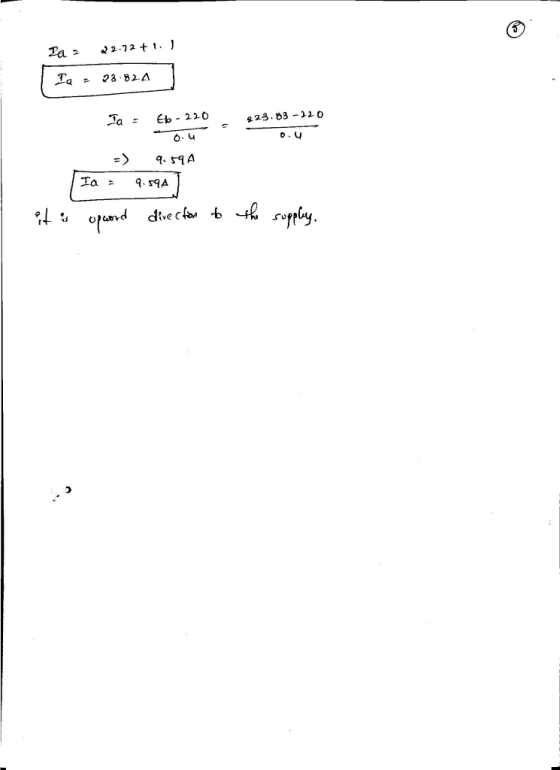 8
Ia = 22.72 + 1.1
Ia = 23.82A
Ia = Eb - 220 / 0.4 = 223.83 - 220 / 0.4
=> 9.59A
Ia = 9.59A
it is opword direction to the supply.